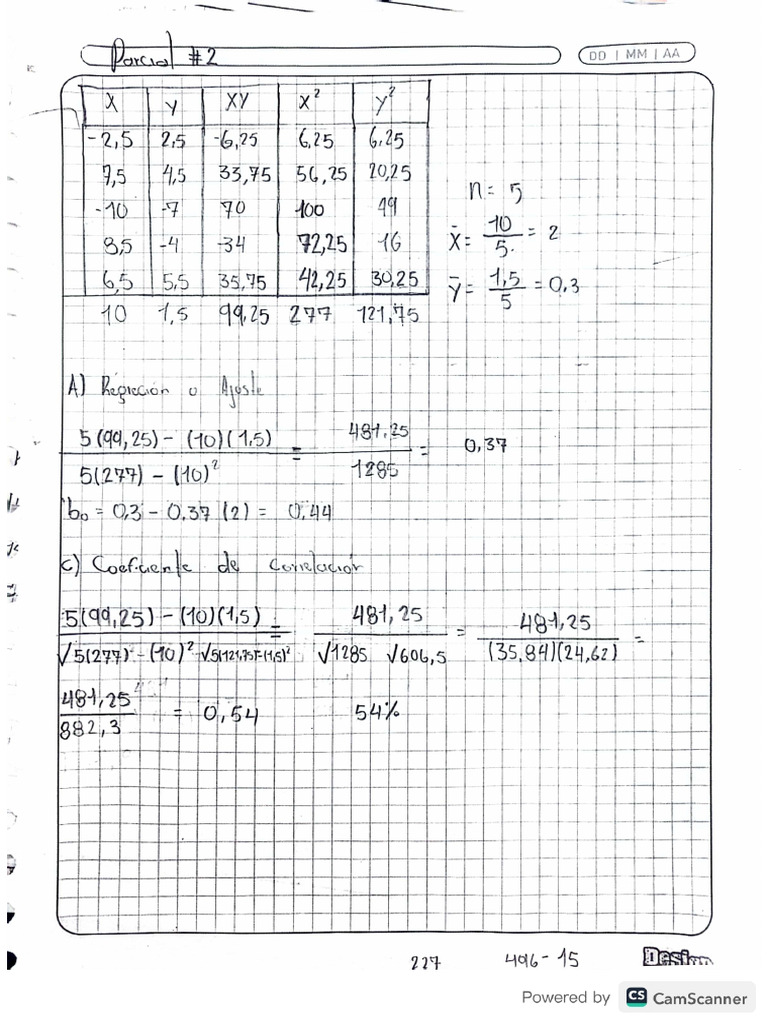 Parcial #2
DD | MM | AA
X Y XY X² y²
-2,5 2,5 -6,25 6,25 6,25
7,5 4,5 33,75 56,25 20,25
-10 -7 70 100 49
8,5 -4 -34 72,25 16
6,5 5,5 35,75 42,25 30,25
10 1,5 99,25 277 121,75
n = 5
x̄ = 10/5 = 2
ȳ = 1,5/5 = 0,3
A) Regresión o Ajuste
5(99,25) - (10)(1,5) / 5(277) - (10)² = 481,25 / 1285 = 0,37
b₀ = 0,3 - 0,37 (2) = 0,44
C) Coeficiente de Correlación
5(99,25) - (10)(1,5) / √5(277) - (10)² √5(121,75)-(1,5)² = 481,25 / √1285 √606,5 = 481,25 / (35,84)(24,62) =
481,25 / 882,3 = 0,54 54%
227 496-15
Design
Powered by CS CamScanner